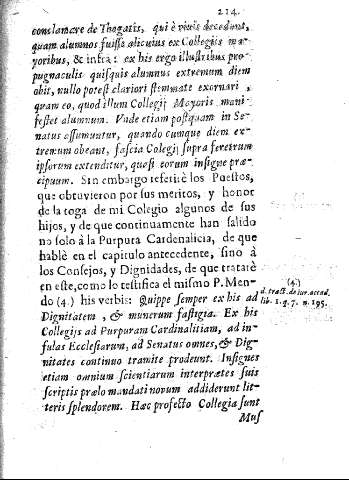 214.
conclamare de Thogatis, qui è vivis decedunt,
quam alumnos fuisse alicuius ex Collegijs ma-
yoribus, & infra: ex his ergo illustribus pro-
pugnaculis quisquis alumnus extremum diem
obit, nullo potest clariori stemmate exornari,
quam eo, quod illum Collegij Mayoris mani-
festet alumnum. Unde etiam postquam in Se-
natus assumuntur, quando cumque diem ex-
tremum obeant, fascia Colegij supra feretrum
ipsorum extenditur, quasi eorum insigne præ-
cipuum. Sin embargo referirè los Puestos,
que obtuvieron por sus meritos, y honor
de la toga de mi Colegio algunos de sus
hijos, y de que continuamente han salido
no solo à la Purpura Cardenalicia, de que
hablè en el capitulo antecedente, sino à
los Consejos, y Dignidades, de que tratarè
en este, como lo testifica el mismo P. Men-
do (4.) his verbis: Quippe semper ex his ad
Dignitatem, & munerum fastigia. Ex his
Collegijs ad Purpuram Cardinalitiam, ad in-
fulas Ecclesiarum, ad Senatus omnes, & Dig-
nitates continuo tramite prodeunt. Insignes
etiam omnium scientiarum interpretes suis
scriptis prælo mandati novum addiderunt lit-
teris splendorem. Hæc profecto Collegia sunt
Mus
(4.)
d. tract. de iur. acad.
lib. 1. q. 7. n. 195.